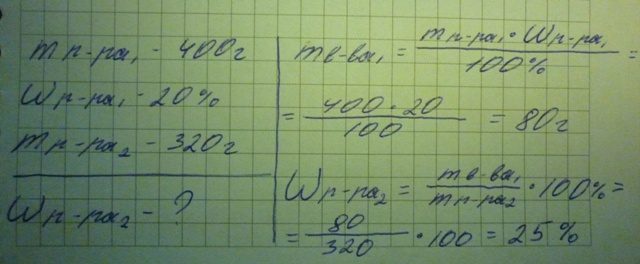 mр-ра₁ - 400г
Wр-ра₁ - 20%
mр-ра₂ - 320г
Wр-ра₂ - ?
mв-ва₁ = mр-ра₁ · Wр-ра₁ / 100% =
= 400 · 20 / 100 = 80г
Wр-ра₂ = mв-ва₁ / mр-ра₂ · 100% =
= 80 / 320 · 100 = 25%